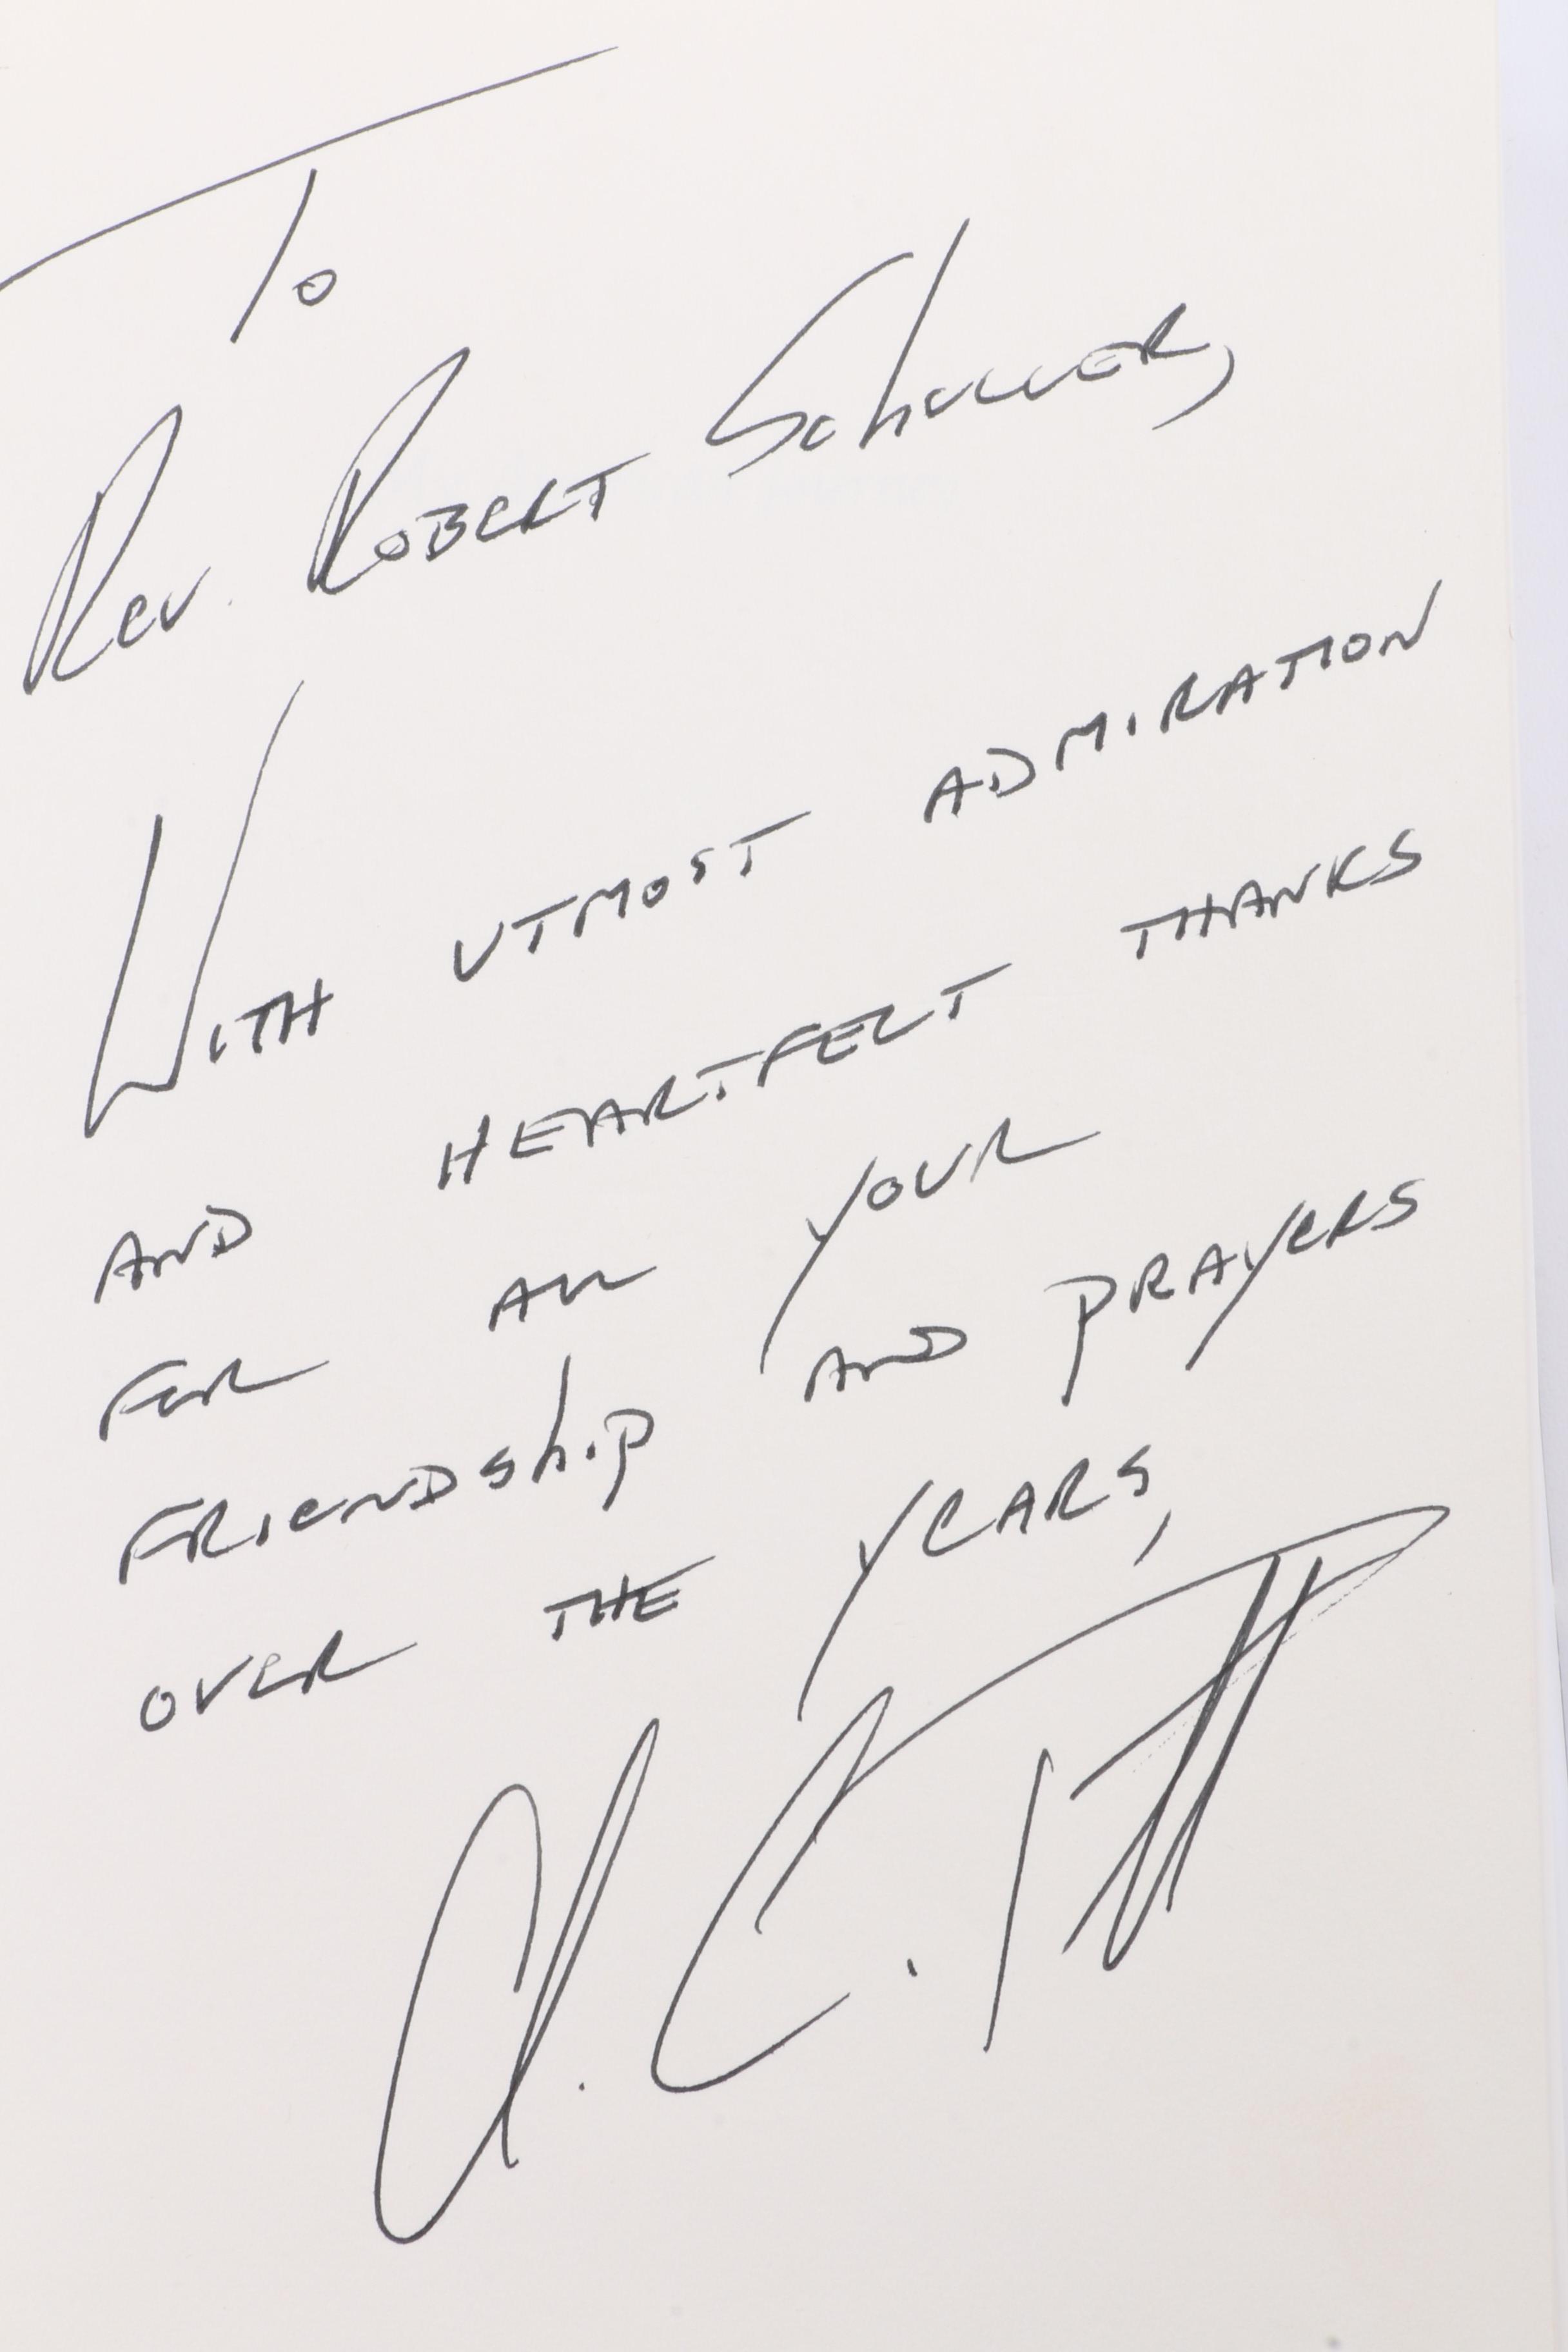 To
Rev. Robert Schuller,
With utmost admiration
and heartfelt thanks
for all your
friendship and prayers
over the years,